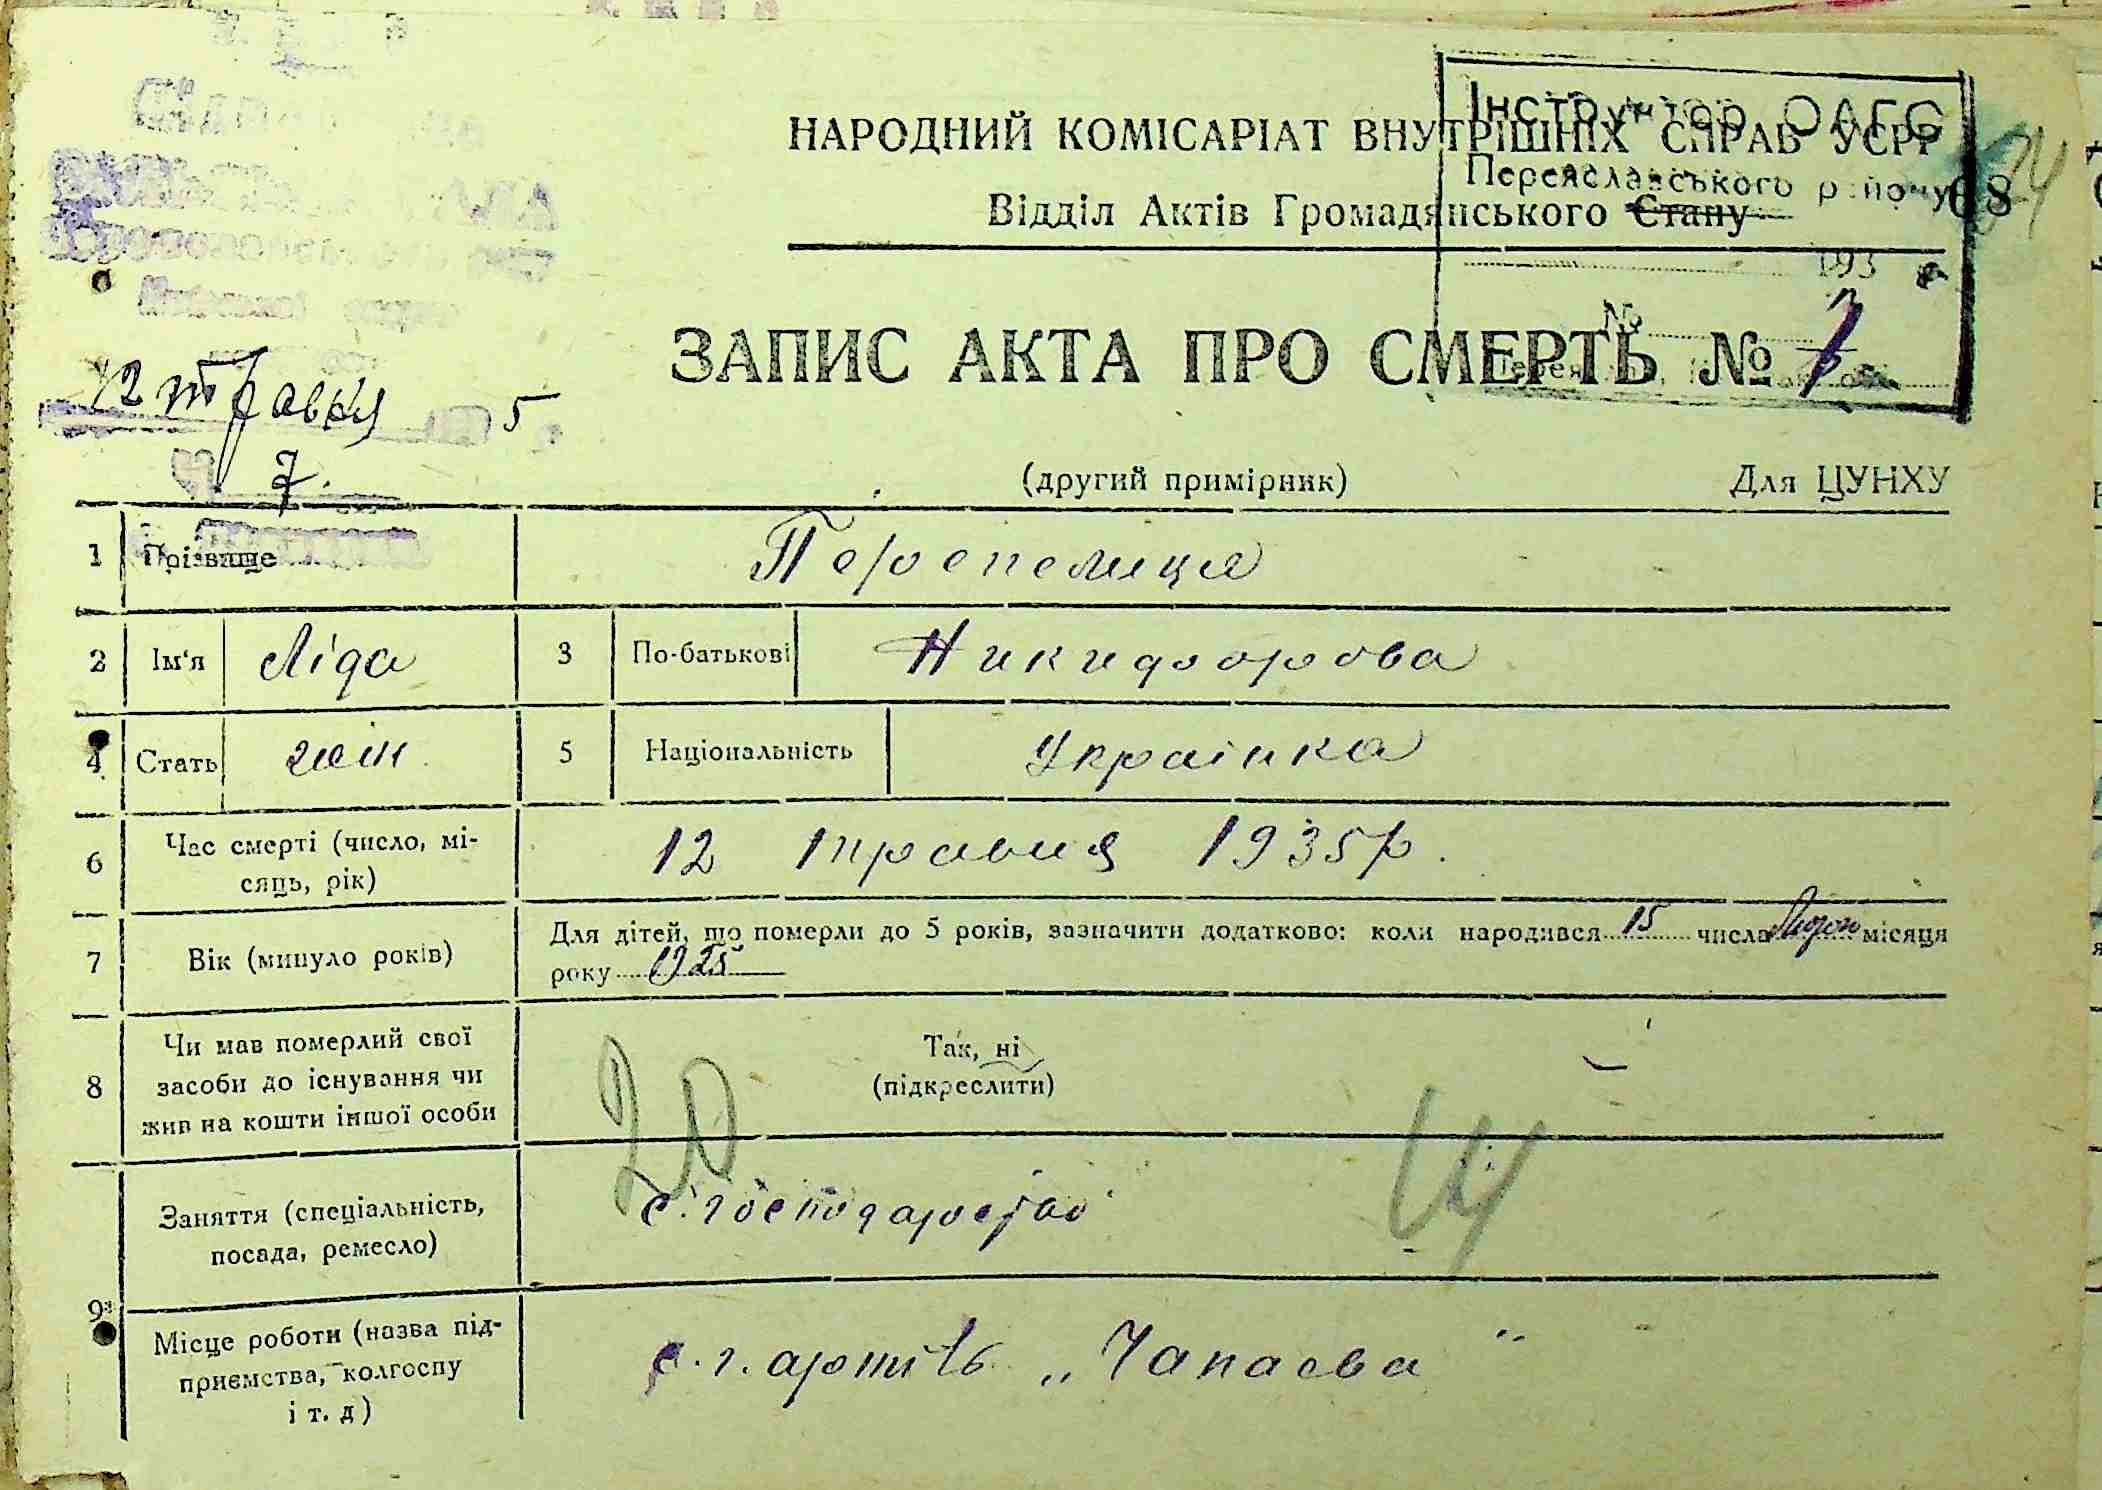 Інструктор ОАГС
НАРОДНИЙ КОМІСАРІАТ ВНУТРІШНІХ СПРАВ УСРР
Переяславського району
68
Відділ Актів Громадянського Стану
193
№
ЗАПИС АКТА ПРО СМЕРТЬ № 7
12 травня 5
7.
(другий примірник) Для ЦУНХУ
1 Прізвище Перепелиця
2 Ім'я Ліда 3 По-батькові Никифорова
4 Стать жін. 5 Національність Українка
6 Час смерті (число, мі-
сяць, рік) 12 травня 1935р.
7 Вік (минуло років) Для дітей, що померли до 5 років, зазначити додатково: коли народився 15 числа місяця
року 1925
8 Чи мав померлий свої
засоби до існування чи
жив на кошти іншої особи
Так, ні
(підкреслити)
20
9 Заняття (спеціальність,
посада, ремесло)
с. господарство
Місце роботи (назва під-
приємства, колгоспу
і т. д)
с. г. артіль „Чапаєва"